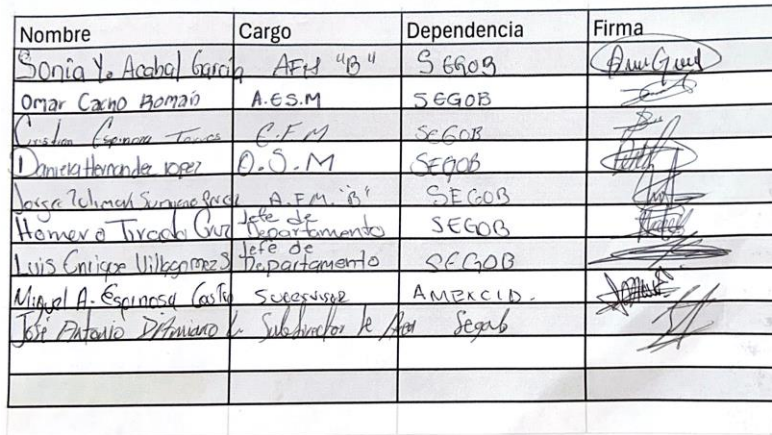 Nombre Cargo Dependencia Firma
Sonia Y. Acabal García AFM "B" SEGOB
Omar Cacho Román A.ES.M SEGOB
Cristian Espinoza Torres C.F.M SEGOB
Daniela Hernandez lopez O.S.M SEGOB
Jorge A.F.M. "B" SEGOB
Homero Tirado Cruz Jefe de Departamento SEGOB
Luis Enrique Villagomez S Jefe de Departamento SEGOB
Miguel A. Espinosa Castro Supervisor AMEXCID.
José Antonio Subdirector de Area Segob